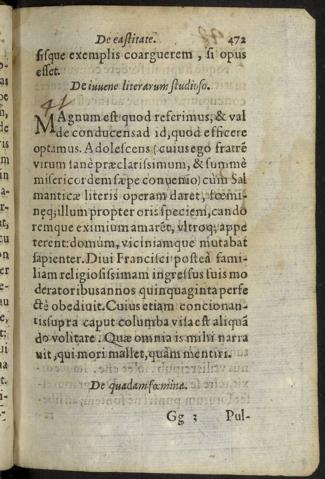 De castitate. 472
sisque exemplis coarguerem, si opus
esset.
De iuuene literarum studioso.
MAgnum est quod referimus, & val
de conducens ad id, quod efficere
optamus. Adolescens (cuius ego fratrē
virum sanè præclarissimum, & summè
misericordem sæpe conuenio) cùm Sal
manticæ literis operam daret, fœmi-
nęq; illum propter oris speciem, cando
remque eximium amarēt, vltroq; appe
terent: domùm, viciniamque mutabat
sapienter. Diui Francisci posteà fami-
liam religiosissimam ingressus suis mo
deratoribus annos quinquaginta perfe
ctè obediuit. Cuius etiam concionan-
tis supra caput columba visa est aliquā
do volitare. Quæ omnia is mihi narra
uit, qui mori mallet, quàm mentiri.
De quadam fœmina.
Gg 3 Pul-